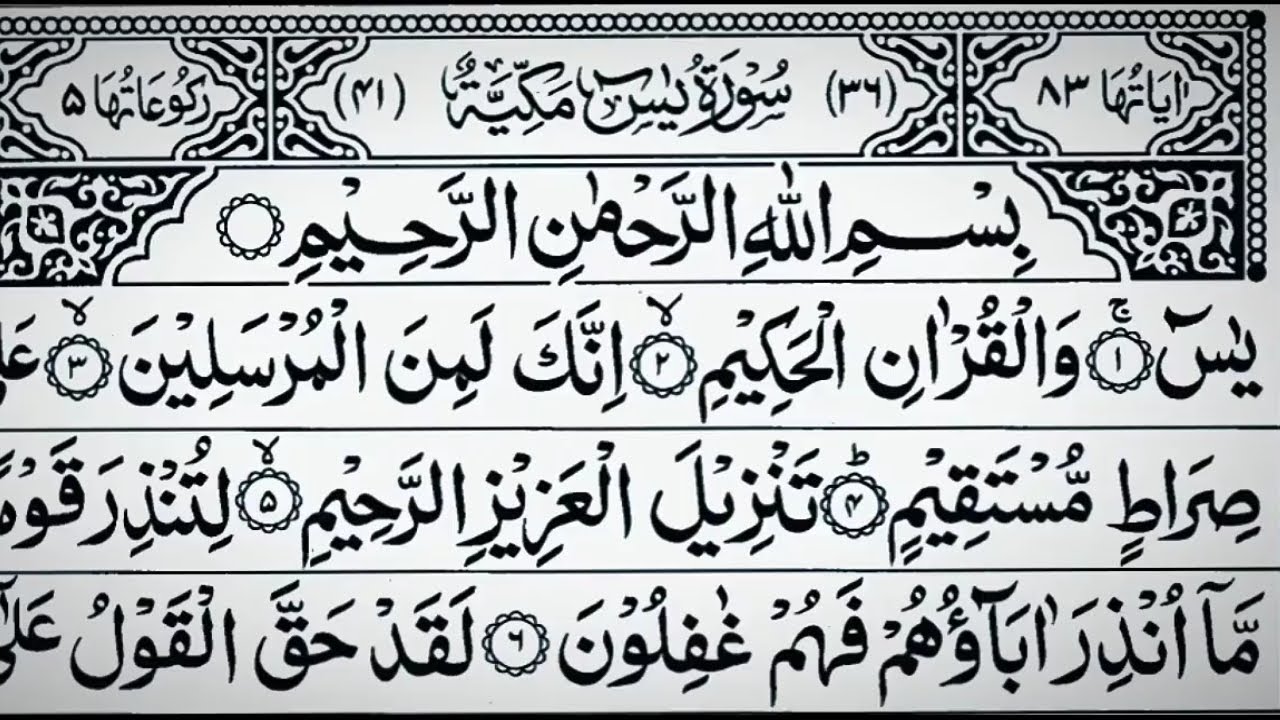 اٰيَاتُهَا ٨٣ (٣٦) سُوْرَةُ يٰسٓ مَكِّيَّةٌ (٤١) رُكُوْعَاتُهَا ٥
بِسْمِ اللّٰهِ الرَّحْمٰنِ الرَّحِيْمِ
يٰسٓ ۚ ١ وَالْقُرْاٰنِ الْحَكِيْمِ ۙ ٢ اِنَّكَ لَمِنَ الْمُرْسَلِيْنَ ۙ ٣
صِرَاطٍ مُّسْتَقِيْمٍ ؕ ۴ تَنْزِيْلَ الْعَزِيْزِ الرَّحِيْمِ ۙ ۵ لِتُنْذِرَ
مَّاۤ اُنْذِرَ اٰبَآؤُهُمْ فَهُمْ غٰفِلُوْنَ ٦ لَقَدْ حَقَّ الْقَوْلُ عَلٰۤى